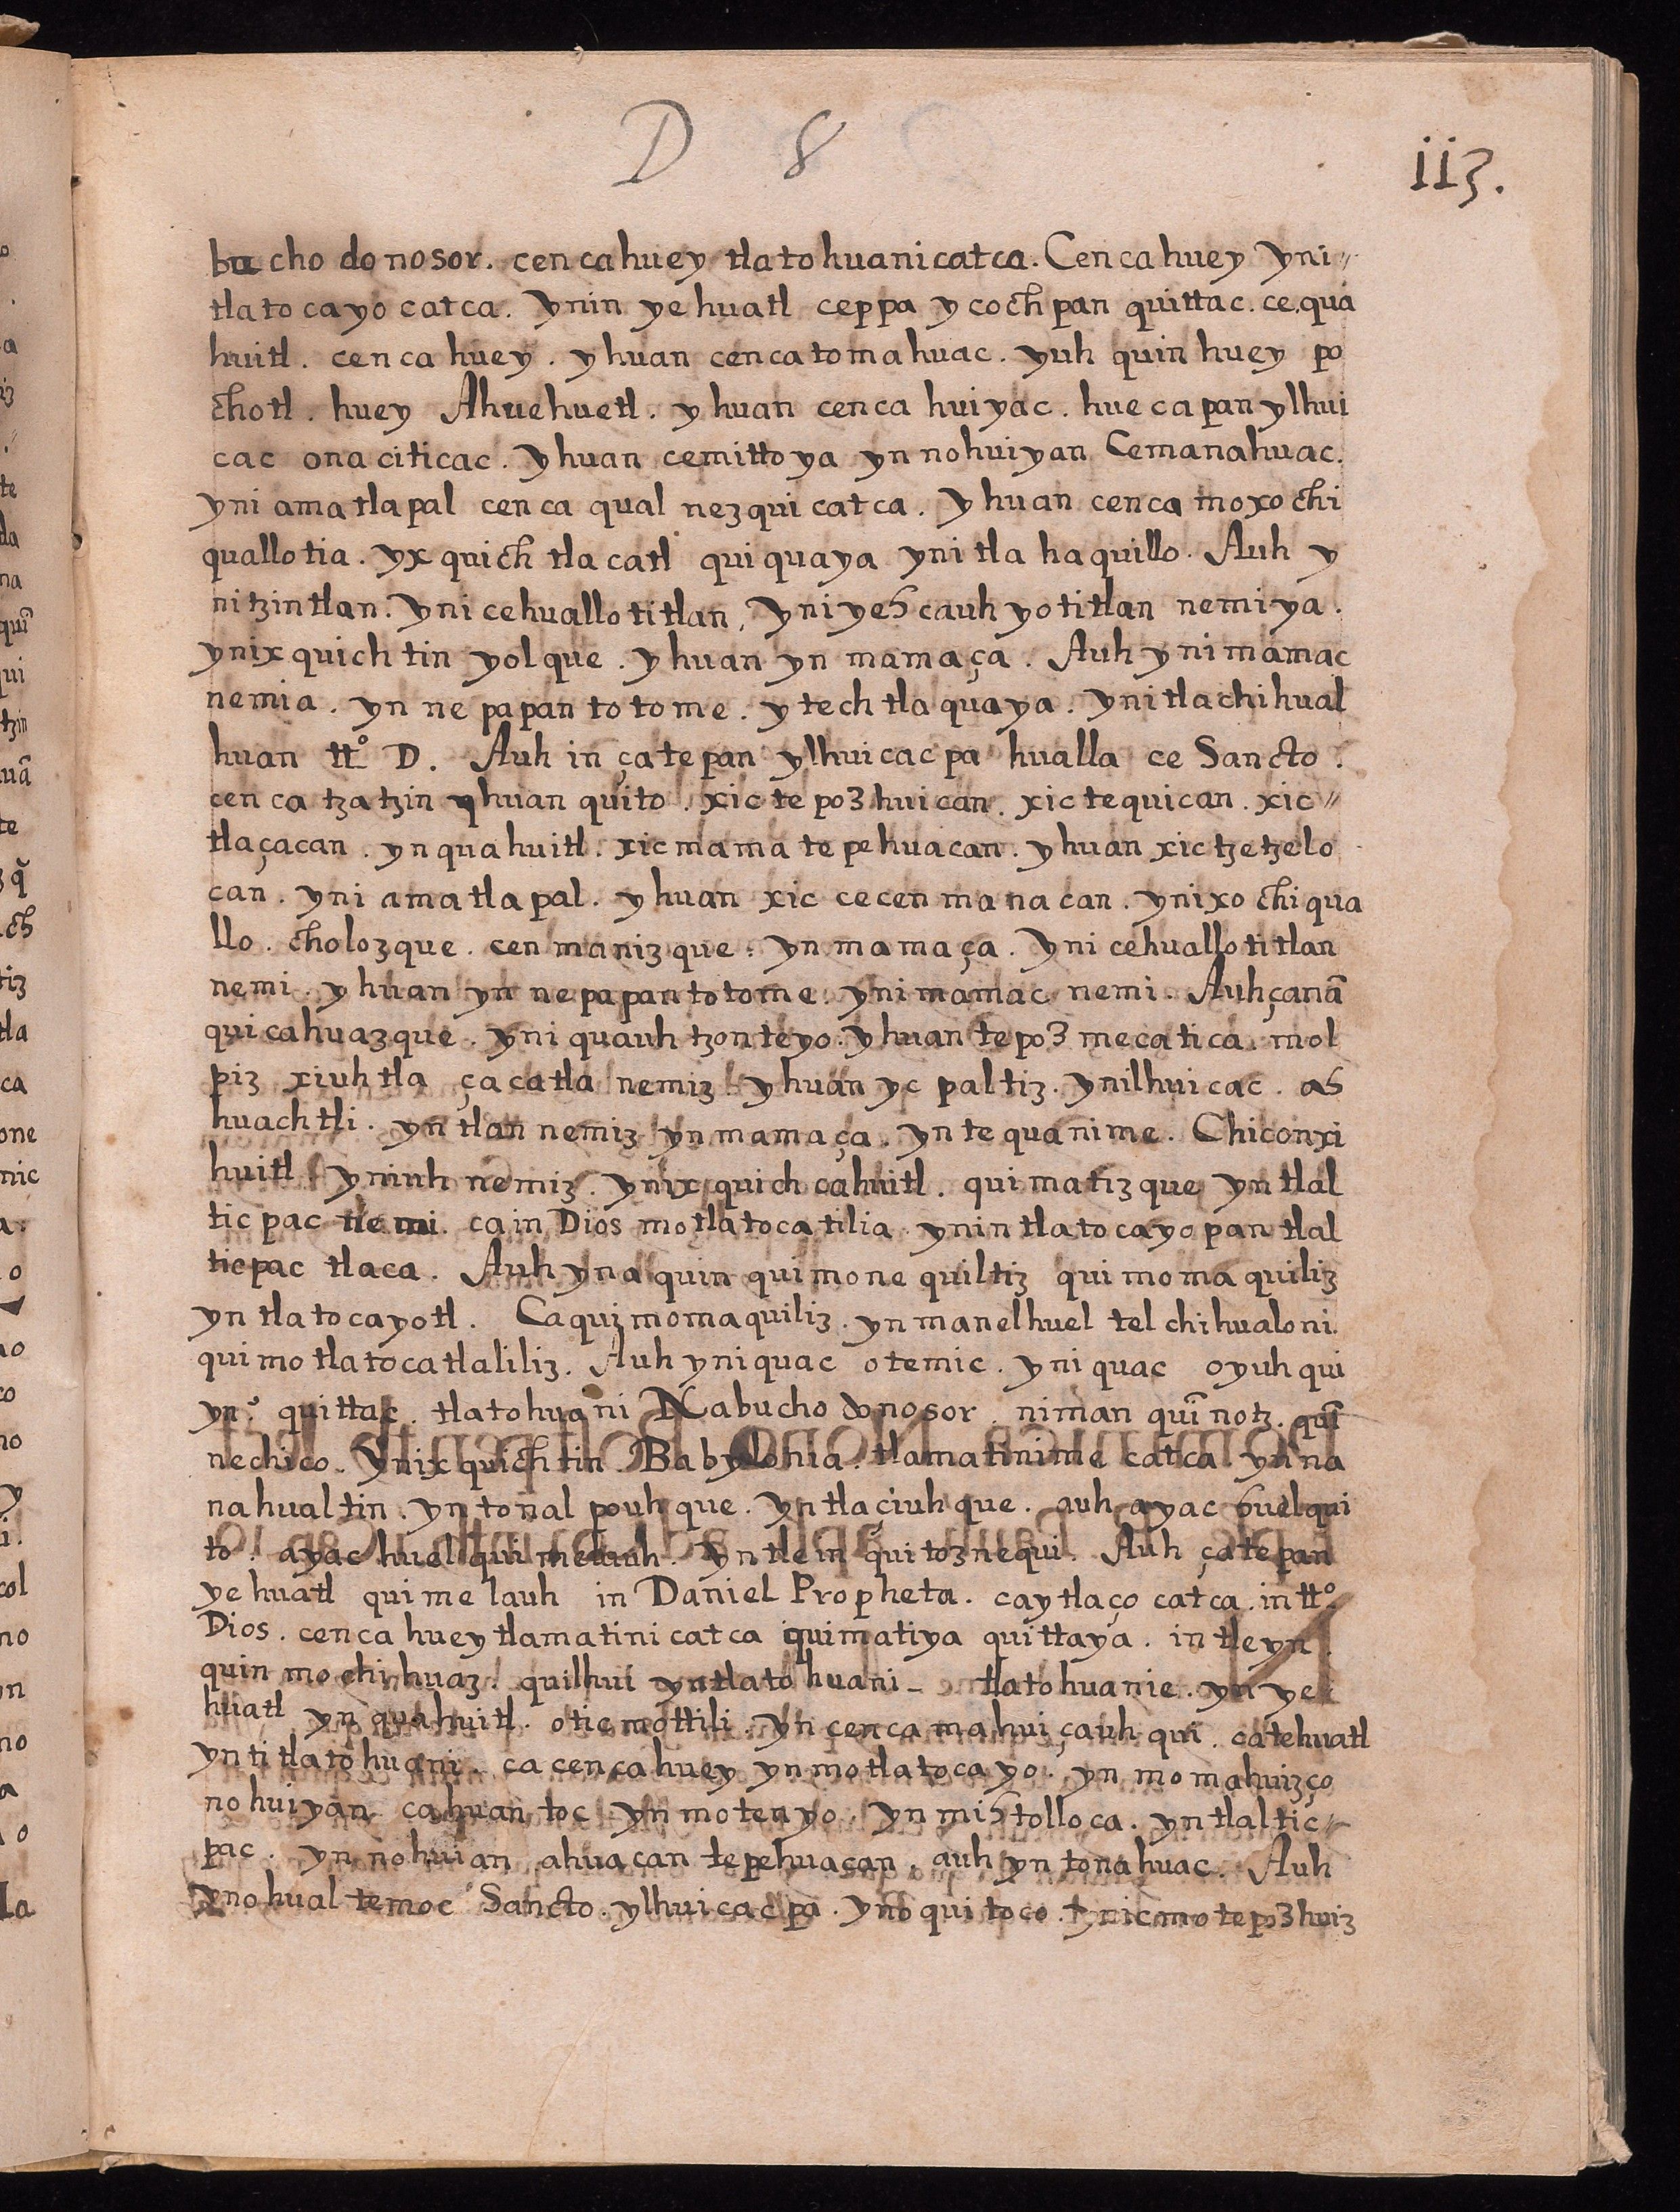 D 8
113.
bucho donosor. cenca huey tlatohuani catca. Cenca huey yni=
tlatocayo catca. Ynin yehuatl ceppa ycochpan quittac. ce. qua
huitl. cenca huey. yhuan cenca tomahuac. yuh quin huey po
chotl. huey Ahuehuetl. yhuan cenca huiyac. huecapan ylhui
cac onaciticac. Yhuan cemittoya yn nohuiyan Cemanahuac.
yni amatlapal cenca qualnezqui catca. Yhuan cenca moxochi
quallotia. yxquich tlacatl quiquaya yni tlahaquillo. Auh y
nitzintlan. Yni cehuallotitlan, Yni yehcauhyotitlan nemiya.
ynixquichtin yolque. yhuan yn mamaça. Auh ynimamac
nemia. yn nepapan totome. ytech tlaquaya. Ynitlachihual
huan ttº D. Auh in çatepan ylhuicacpa hualla ce Sancto.
cenca tzatzin yhuan quito. xictepozhuican. xictequican. xic=
tlaçacan. yn quahuitl. xicmamatepehuacan. yhuan xictzetzelo
can. yni amatlapal. yhuan xiccecenmanacan. ynixochiqua
llo. cholozque. cenmanizque. yn mamaça. Yni cehuallotitlan
nemi. yhuan yn nepapan totome. ynimamac nemi. Auh çanã
quicahuazque. yni quauhtzonteyo. yhuan tepozmecatica. mol
piz xiuhtla çacatla nemiz yhuan yc paltiz. ynilhuicac. ah
huachtli. yntlan nemiz yn mamaça. yn tequanime. Chiconxi
huitl yniuh nemiz. ynixquich cahuitl. quimatizque yn tlal
ticpac nemi. ca in Dios motlatocatilia. ynin tlatocayopan tlal
ticpac tlaca. Auh yn aquin quimonequiltiz quimomaquiliz
yn tlatocayotl. Ca quimomaquiliz. yn manelhuel telchihualoni.
quimotlatocatlaliliz. Auh yniquac otemic. yniquac oyuhqui
ynº quittac. tlatohuani Nabucho donosor. niman quĩnotz. quĩ
nechico. Ynixquichtin Babylonia. tlamatinime catca yn na
nahualtin. yn tonalpouhque. yn tlaçiuhque. auh ayac huelqui
to. ayac huel quimelauh. Yn tlein quitoznequi. Auh çatepan
yehuatl quimelauh in Daniel Propheta. ca ytlaço catca. in ttº
Dios. cenca huey tlamatini catca quimatiya quittaya. in tleyn
quin mochihuaz. quilhui yn tlatohuani_ tlatohuanie. yn ye
huatl yn quahuitl. oticmottili. yn cenca mahuiçauhqui. ca tehuatl
yn titlatohuani. ca cenca huey yn motlatocayo. yn momahuizço
nohuiyan cahuantoc yn motenyo. yn mihtolloca. yn tlaltic=
pac. yn nohuian ahuacan tepehuacan, auh yn tonahuac. Auh
yn ohualtemoc Sancto. ylhuicacpa. yn oquitoco. xicmotepozhuiz